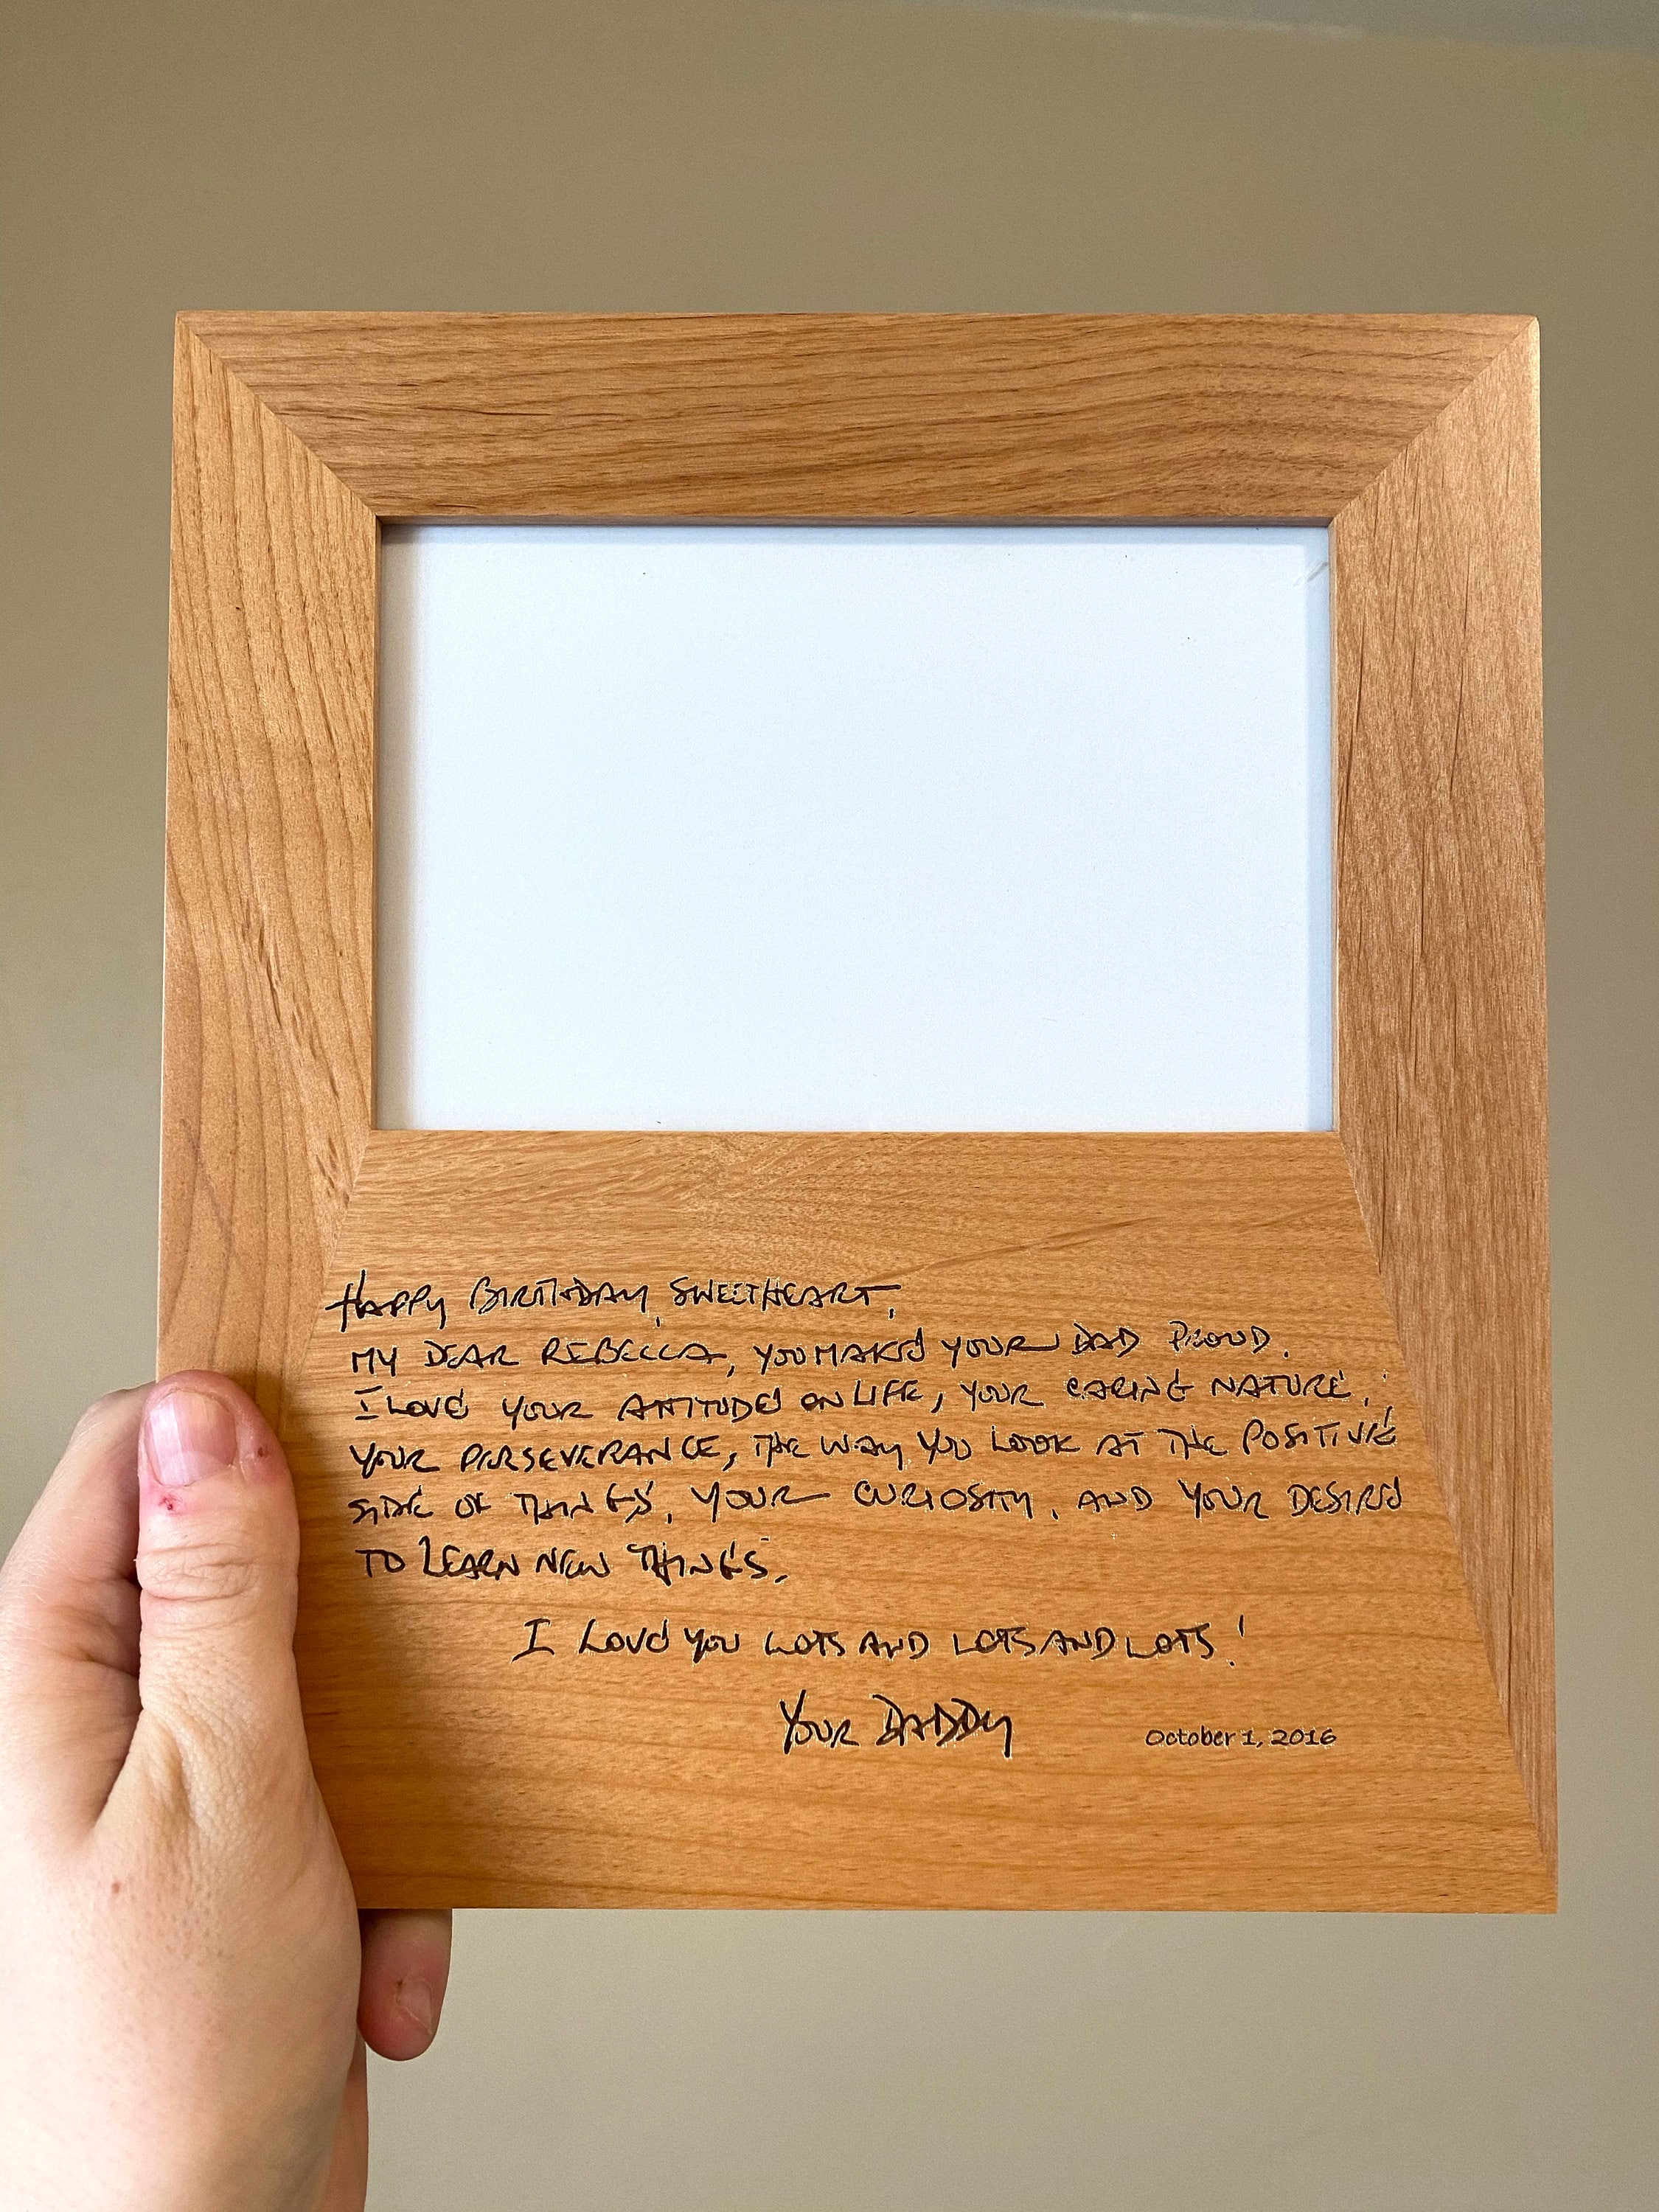 HAPPY BIRTHDAY, SWEETHEART,
MY DEAR REBECCA, YOU MAKE YOUR DAD PROUD.
I LOVE YOUR ATTITUDE ON LIFE, YOUR CARING NATURE,
YOUR PERSEVERANCE, THE WAY YOU LOOK AT THE POSITIVE
SIDE OF THINGS, YOUR CURIOSITY, AND YOUR DESIRE
TO LEARN NEW THINGS.
I LOVE YOU LOTS AND LOTS AND LOTS!
YOUR DADDY
October 1, 2016